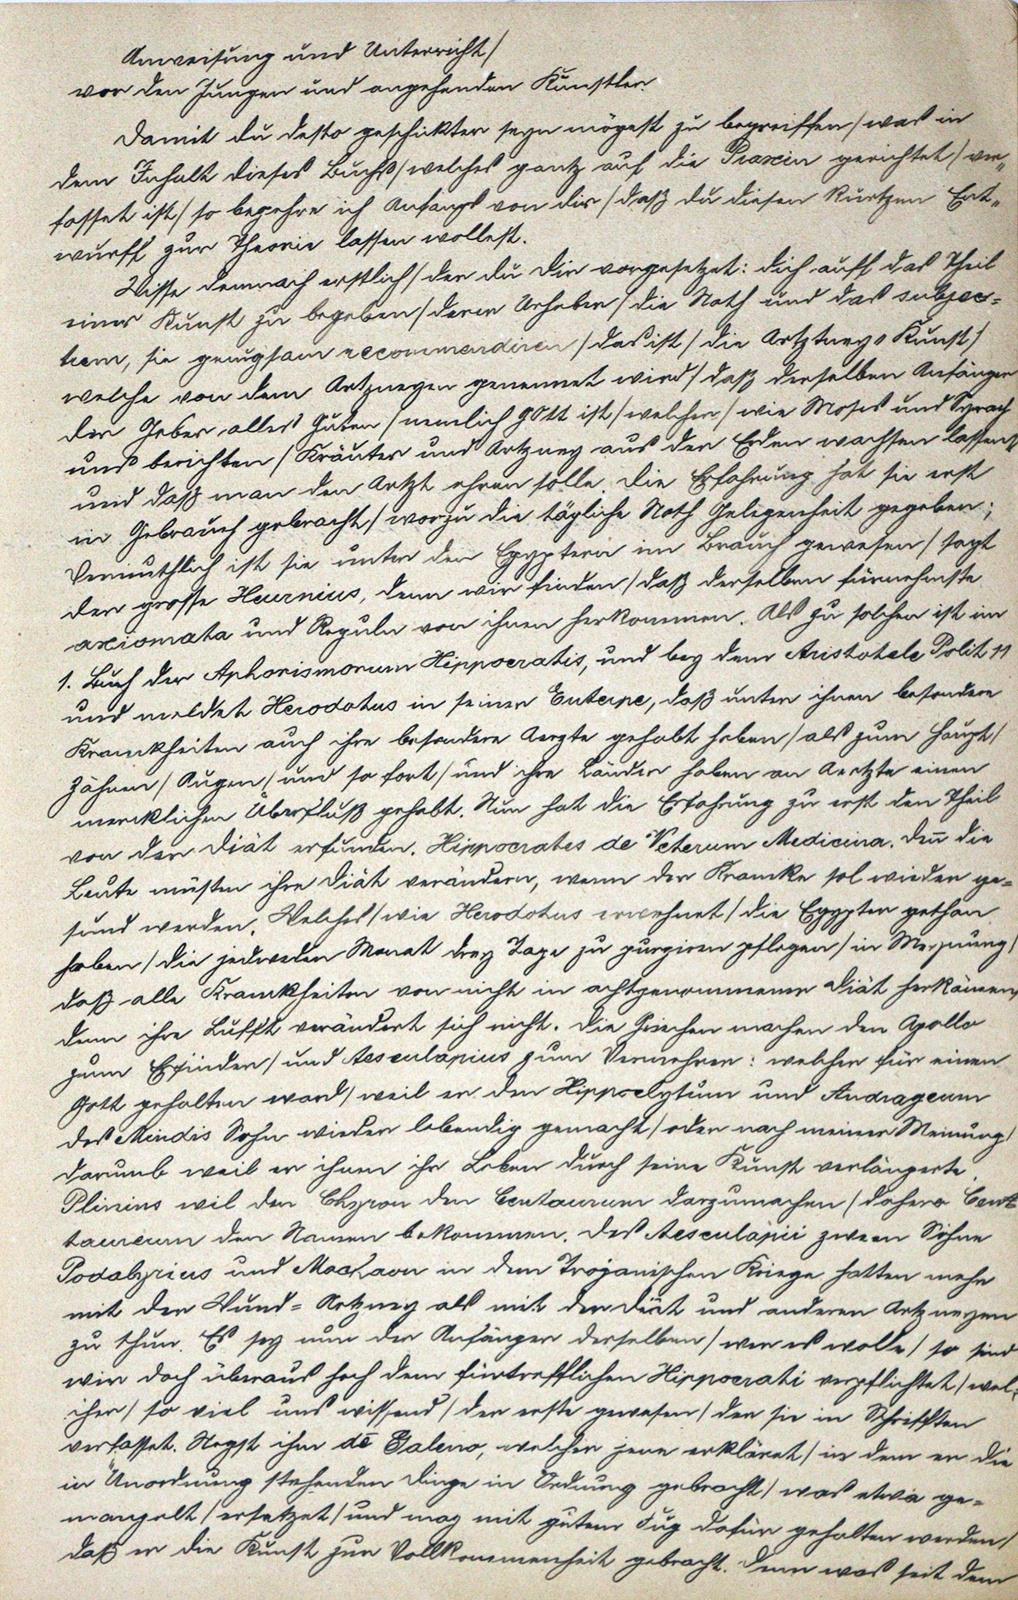 Anweisung und Unterricht/
vor den Jungen und angehenden Künstler
Damit du desto geschickter seyn mögest zu begreiffen/was in
dem Inhalt dieses Buchs/welches gantz auf die Praxin gerichtet/ver-
fasset ist/so begehre ich Anfangs von dir/daß du diesen kurtzen Ent-
wurff zur Theorie lassen wollest.
Wisse demnach erstlich/der du dir vorgesetzet: dich auff das Theil
einer Kunst zu begeben/deren Urheber/die Noth und das subjec-
tum, sie genugsam recommendiren/das ist/die Artzney-Kunst/
welche von dem Artzneyen genennet wird/daß derselben Anfänger
der Geber alles Guten/nemlich GOtt ist/welcher/wie Moses und Syrach
uns berichten/Kräuter und Artzney aus der Erden wachsen lassen/
und daß man den Artzt ehren solle. Die Erfahrung hat sie erst
in Gebrauch gebracht/worzu die tägliche Noth Gelegenheit gegeben;
Vermuthlich ist sie unter den Egyptern im Brauch gewesen/sagt
der grosse Heurnius, denn wir finden/daß derselben fürnehmste
axiomata und Reguln von ihnen herkommen. Als zu solchen ist im
1. Buch der Aphorismorum Hippocratis, und bey dem Aristotele Polit 11
und meldet Herodotus in seiner Euterpe, daß unter ihnen besondere
Kranckheiten auch ihre besondere Aerzte gehabt haben/als zum Haupt/
Zähnen/Augen/und so fort/und ihre Länder haben an Aertzte einen
mercklichen Überfluß gehabt. Nun hat die Erfahrung zu erst den Theil
von der Diät erfunden. Hippocrates de Veterum Medicina. Den̄ die
Leute müsten ihre Diät verändern, wenn der Krancke sol wieder ge-
sund werden. Welches/wie Herodotus erwehnet/die Egypter gethan
haben/die jedweden Monat drey Tage zu purgiren pflegen/in Meynung/
daß alle Kranckheiten von nicht in acht genommener Diät herkämen,
denn ihre Lufft verändert sich nicht. Die Griechen machen den Apollo
zum Erfinder/und Aesculapius zum Vermehrer: welcher für einen
Gott gehalten ward/weil er den Hippolytum und Andrageum
des Mindis Sohn wieder lebendig gemacht/oder nach meiner Meinung/
darumb weil er ihnen ihr Leben durch seine Kunst verlängerte.
Plinius wil den Chyron den Centaurum darzumachen/dahero Cent
taureum den Namen bekommen. Des Aesculapii zween Söhne
Podalyrius und Machaon in dem Trojanischen Kriege hatten mehr
mit der Wund-Artzney als mit der Diät und anderen Artzneyen
zu thun. Es sey nun der Anfänger derselben/wer es wolle/so sind
wir doch überaus hoch dem fürtrefflichen Hippocrati verpflichtet/wel-
cher/so viel uns wissend/der erste gewesen/der sie in Schrifften
verfasset. Negst ihm dē Galeno, welcher jene erkläret/in dem er die
in Unordnung stehenden Dinge in Ordnung gebracht/was etwa ge-
mangelt/ersetzet/und mag mit gutem Fug dafür gehalten werden/
daß er die Kunst zur Vollkommenheit gebracht. Denn was seit dem